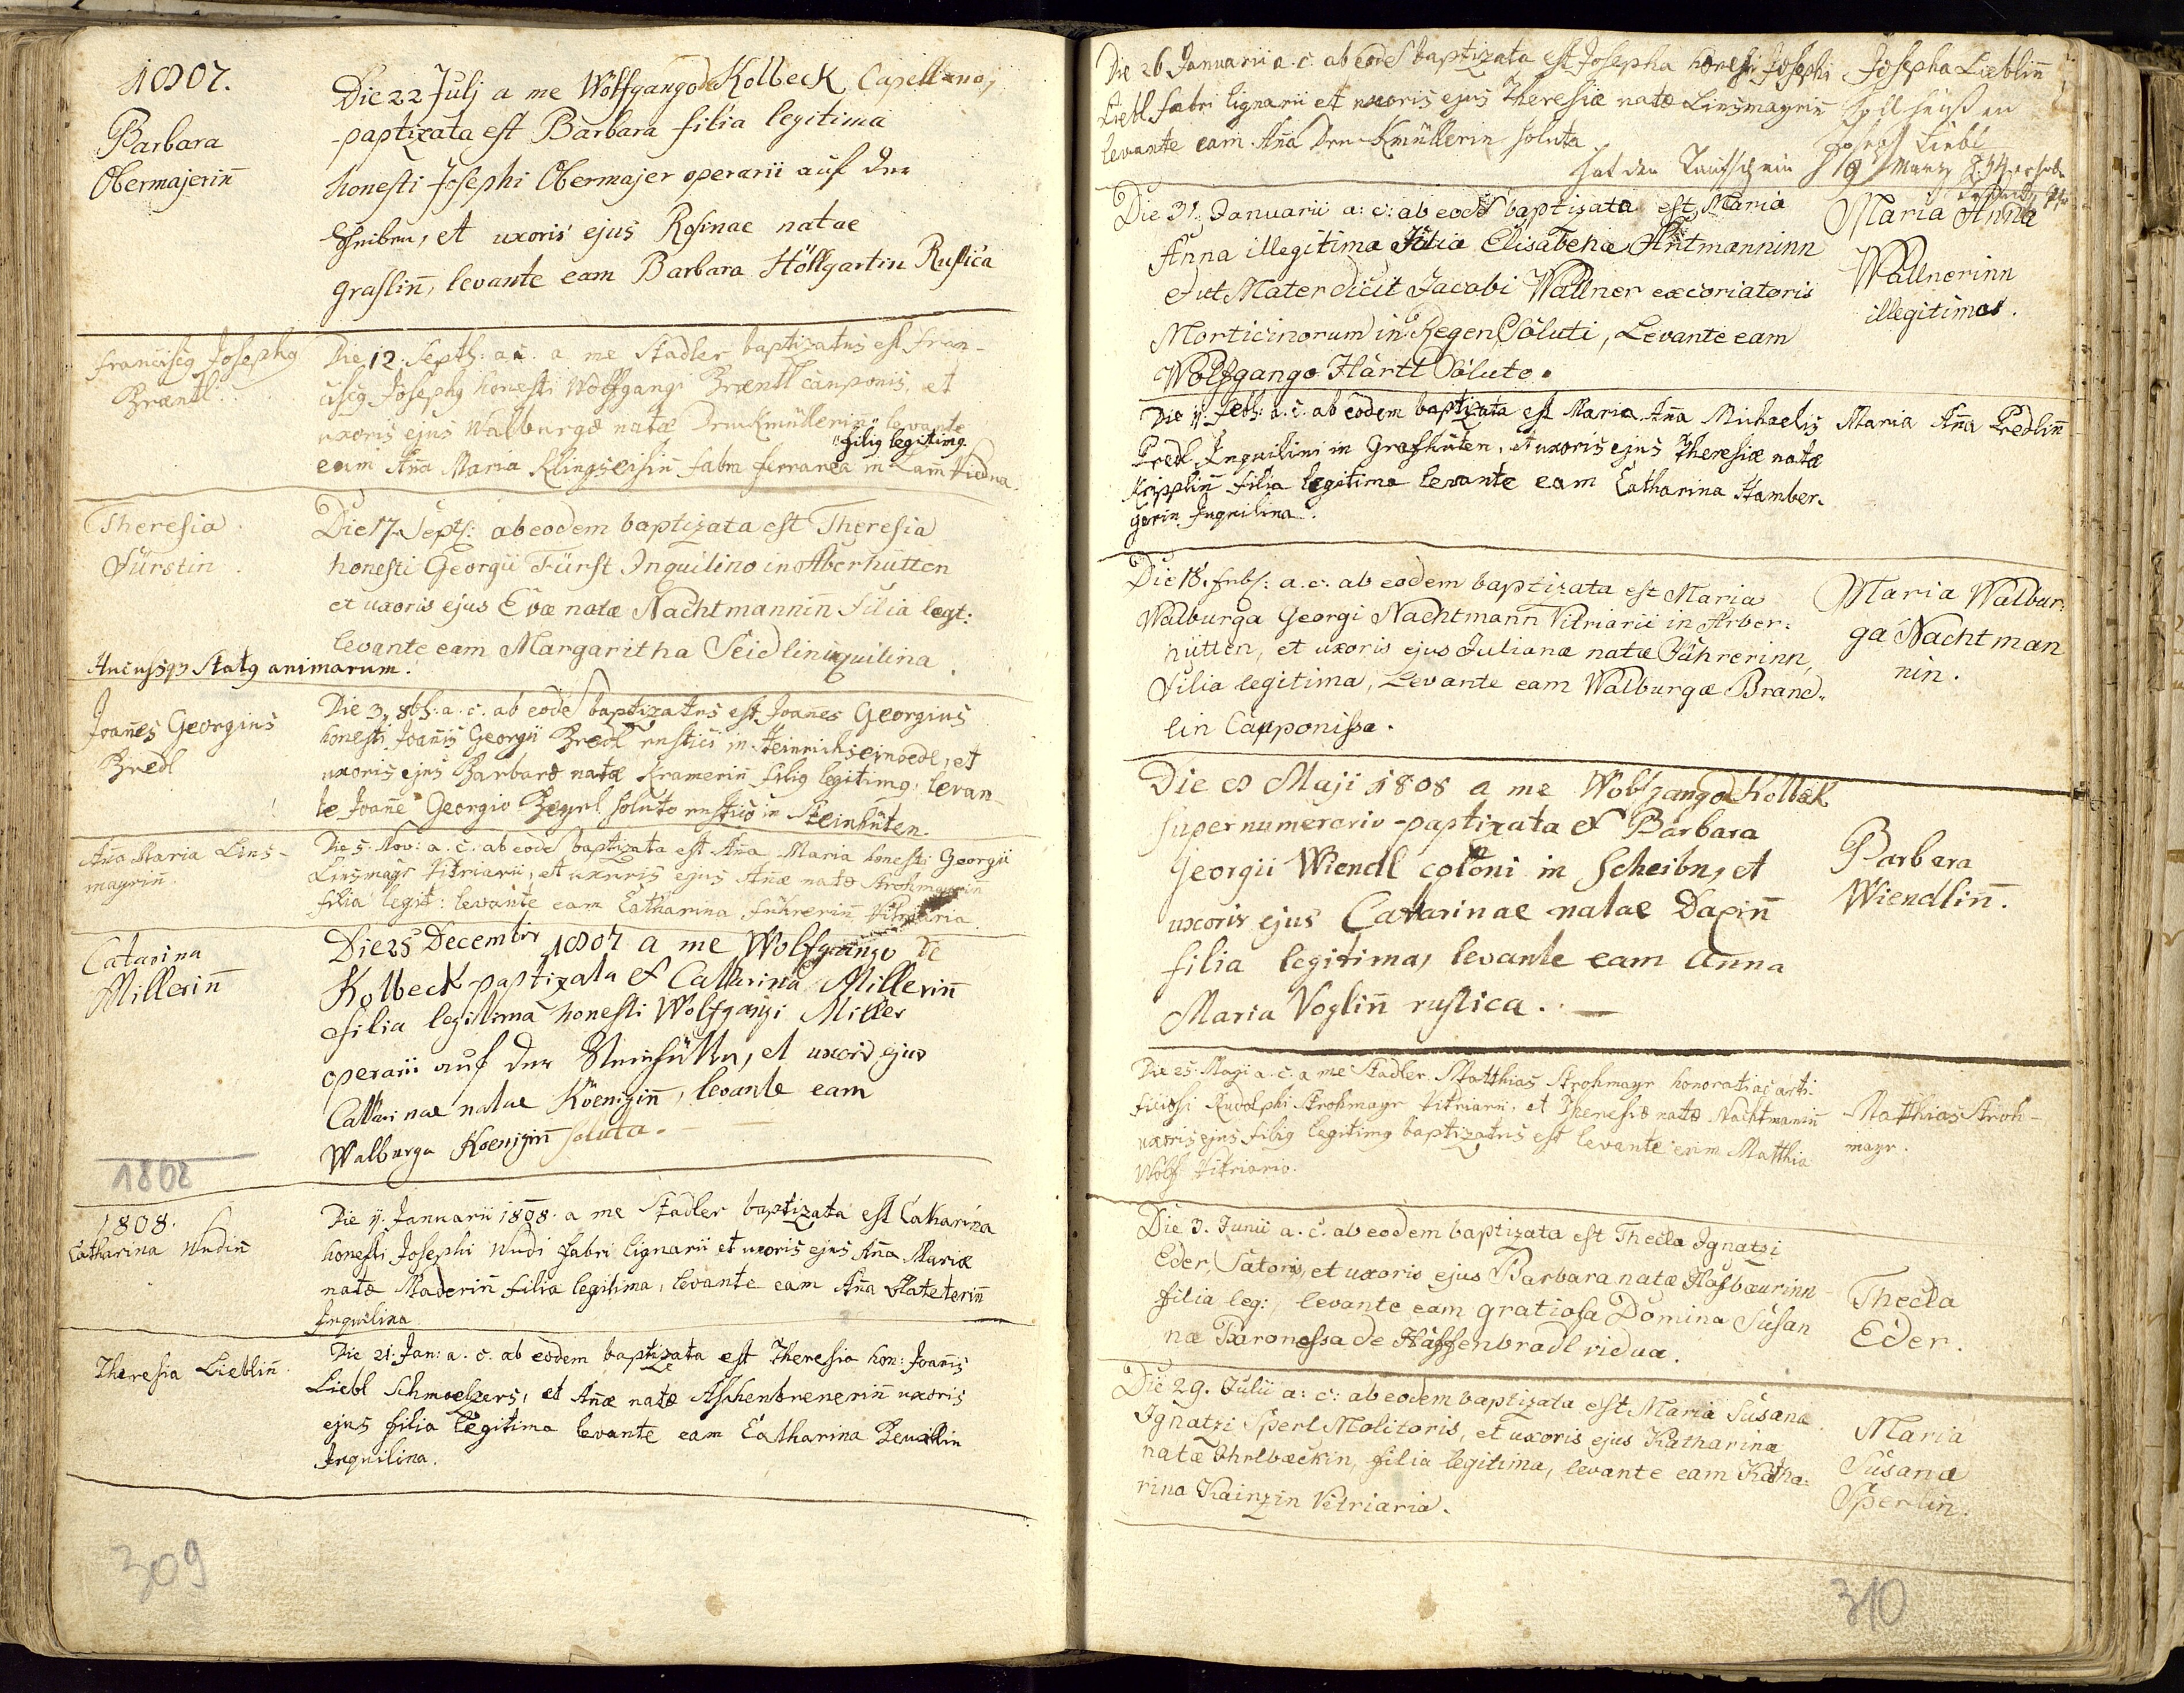 1807.
Barbara
Obermajerin̄
Die 22 Julj a me Wolfgango de Kolbeck Capellano,
paptizata est Barbara filia legitima
honesti Josephi Obermajer operarii auf der
Scheiben, et uxoris ejus Rosinae natae
graslin̄, levante eam Barbara Höllgartin Rustica
Franciscg Josephg
Brentl.
Die 12. Septb: a.c. a me Stadler baptizatus est Fran-
ciscg Josephg honesti Wolfgangi Brentl cauponis, et
uxoris ejus Walburgæ natæ Drucksmüllerin̄ " levante
" filig legitimg.
eum An̄a Maria Klingseisin̄ fabra ferraria in Lam vidua.
Theresia
Fürstin.
Die 17. Septb: ab eodem baptizata est Theresia
honesti Georgii Fürst Inquilino in Aberhütten
et uxoris ejus Evæ natæ Nachtmannin̄ Filia legt:
levante eam Margaritha Seidlin inquilina.
Status animarum.
Joan̄es Georgius
Bredl
Die 3. 8b: a.c. ab eodē baptizatus est Joan̄es Georgius
honesti Joan̄is Georgii Bredl rustici in Heinrichseinoedl, et
uxoris ejus Barbaræ natæ Kramerin̄ filig legitimg: levan-
te Joan̄e Georgio soluto rustico in Steinhüten.
An̄a Maria Lins-
mayrin̄
Die 5. Nov: a.c. ab eodē baptizata est An̄a Maria honesti Georgii
Linsmayr Vitriarii, et uxoris ejus An̄æ natæ Strohmayrin̄
filia legit: levante eam Catharina Führerin̄ Vitriaria
Catarina
Millerin̄
Die 25 Decembr 1807 a me Wolfgango de
Kolbeck paptizata est Catharina Millerin̄
filia legitima honesti Wolfgangi Miller
operarii auf der Steinhütten, et uxoris ejus
Catharinae natae Koenigin̄, levante eam
Walburga Koenigin̄ soluta.
1808
1808.
Catharina Wudin̄
Die y. Januarii 1808. a me Stadler baptizata est Catharina
honesti Josephi Wudi fabri lignarii et uxoris ejus An̄a Mariæ
natæ Maderin̄ filia legitima, levante eam An̄a
Inquilina
Theresia Lieblin̄.
Die 21. Jan: a.c. ab eodem baptizata est Theresia hon: Joan̄is
Liebl Schmoelzers, et An̄æ natæ Aschenbrenerin̄ uxoris
ejus filia legitima levante eam Catharina
Inquilina.
309
Die 26. Januarii a.c. ab eodē baptizata est Josepha honesti Josephi
Liebl fabri lignarii et uxoris ejus Theresiæ natæ Linsmayrin̄
levante eam An̄a Drucksmüllerin soluta.
Josepha Lieblin̄
Josef Liebl
hat den Taufschein 19 Marz
Die 31. Januarii a: c: ab eodē baptizata est Maria
Anna illegitima Filia Elisabethæ Antmanninn
et ut Mater dicit Jacobi Wallner excoriatoris
Morticinorum in Regen Soluti, Levante eam
Wolfgango Härtl Soluto.
Maria Anna
Wallnerinn
illegitima.
Die y. Feb: a.c. ab eodem baptizata est Maria An̄a Michaelis
Predl Inquilini in Grafhüten, et uxoris ejus Theresiæ natæ
Kripplin̄ filia legitima levante eam Catharina Hamber-
gerin Inquilina.
Maria An̄a Predlin̄
Die 18. Feb: a.c. ab eodem baptizata est Maria
Walburga Georgi Nachtmann Vitriarii in Arber-
hütten, et uxoris ejus Julianæ natæ Führerinn,
Filia legitima, Levante eam Walburga Brand-
lin Cauponissa.
Maria Walbur-
ga Nachtman
nin.
Die 8 Maji 1808 a me Wolfgango de Kolbek
supernumerario paptizata est Barbara
Georgii Wiendl coloni in Scheibn, et
uxoris ejus Catarinae natae Dapin̄
filia legitima, levante eam Anna
Maria Voglin̄ rustica.
Barbera
Wiendlin̄.
Die 25. Maji a.c. a me Stadler Matthias Strohmayr honorati ac arti-
ficiosi Rudolphi Strohmayr Vitriarii, et Theresiæ natæ Nachtmanin̄
uxoris ejus filig legitimg baptizatus est levante eum Matthia
Wolf Vitriario.
Matthias Stroh-
mayr.
Die 3. Junii a.c. ab eodem baptizata est Thecla Ignatzi
Eder, Satoris, et uxoris ejus Barbara natæ Hasbaurinn
filia leg:, levante eam gratiosa Domina Susan
na Baronessa de Haffenbradl vidua.
Thecla
Eder.
Die 29. Julii a: c: ab eodem baptizata est Maria Susana
Ignatzi Sperl Molitoris, et uxoris ejus Katharina
natæ filia legitima, levante eam Katha-
rina Kainzin Vitriaria.
Maria
Susana
Sperlin.
310